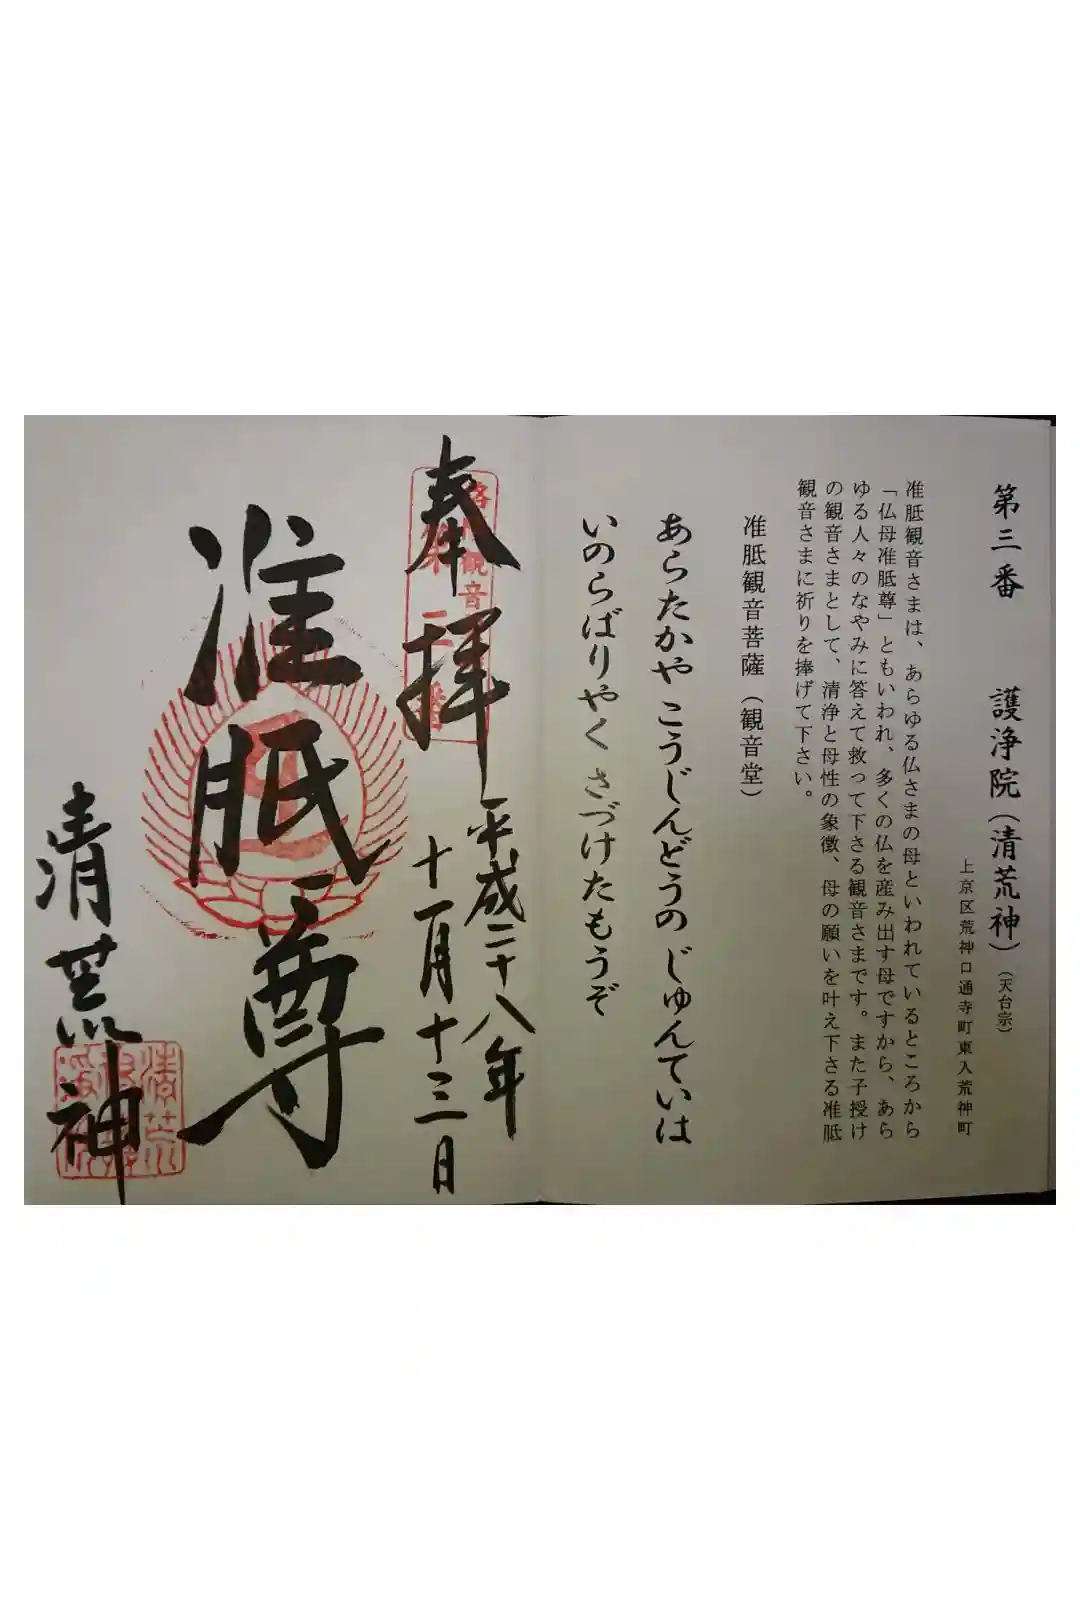 第三番　護浄院（清荒神）（天台宗）
上京区荒神口通寺町東入荒神町
准胝観音さまは、あらゆる仏さまの母といわれているところから
「仏母准胝尊」ともいわれ、多くの仏を産み出す母ですから、あら
ゆる人々のなやみに答えて救って下さる観音さまです。また子授け
の観音さまとして、清浄と母性の象徴、母の願いを叶え下さる准胝
観音さまに祈りを捧げて下さい。
准胝観音菩薩（観音堂）
あらたかや こうじんどうの じゅんていは
いのらばりやく さづけたもうぞ
奉拝
平成二十八年
十一月十三日
准胝尊
清荒神